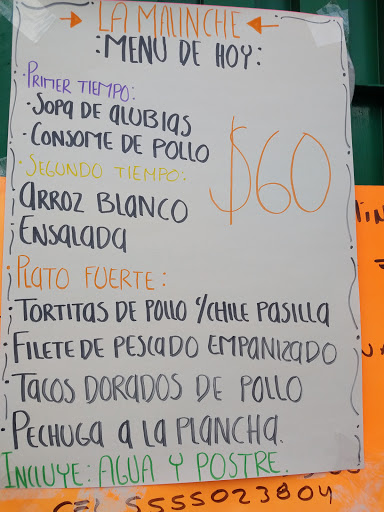 LA MALINCHE
:MENU DE HOY:
·PRIMER TIEMPO:
·SOPA DE ALUBIAS
·CONSOME DE POLLO
$60
·SEGUNDO TIEMPO:
ARROZ BLANCO
ENSALADA
·PLATO FUERTE:
·TORTITAS DE POLLO C/CHILE PASILLA
·FILETE DE PESCADO EMPANIZADO
·TACOS DORADOS DE POLLO
·PECHUGA A LA PLANCHA.
INCLUYE: AGUA Y POSTRE.
CEL 5555023804